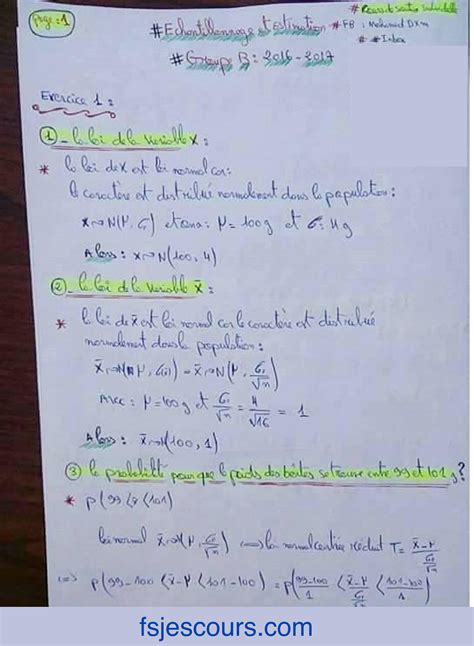 Page: 1
# Echantillonnage et estimation
# FB : Mohimid DXm
# Inbox
# Groupe B : 2016 - 2017
Exercice 1 :
① - la loi de la variable X :
* la loi de X est loi normal car :
le caractère est distribué normalement dans la population :
X ↝ N(μ, σ) et on a : μ = 100g et σ = 4g
Alors : X ↝ N(100, 4)
② - la loi de la variable x̄ :
* la loi de x̄ est loi normal car le caractère est distribué
normalement dans la population :
x̄ ↝ N(μ, σ) = x̄ ↝ N(μ, σ/√n)
Avec : μ = 100g et σ/√n = 4/√16 = 1
Alors : x̄ ↝ N(100, 1)
③ la probabilité pour que le poids des boites se trouve entre 99 et 101 g ?
* P(99 < x̄ < 101)
loi normal x̄ ↝ N(μ, σ/√n) ⟺ loi normal centrée réduit T = x̄ - μ / σ/√n
⟺ P(99-100 < x̄ - μ < 101-100) = P(99-100/1 < x̄-μ / σ/√n < 101-100/1)
fsjescours.com